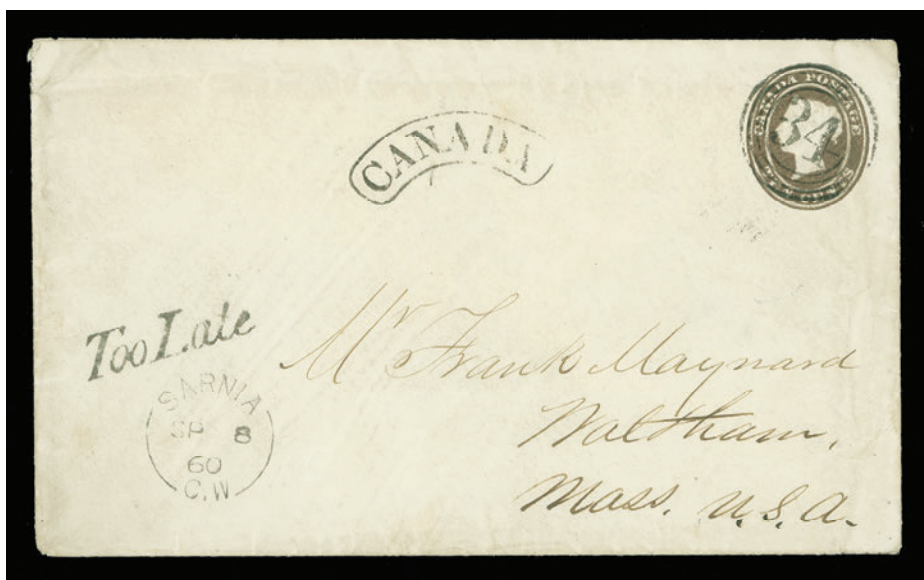 CANADA
CANADA POSTAGE
34
TEN CENTS
Too Late
SARNIA
SP 8
60
C.W
Mr Frank Maynard
Waltham,
Mass. U.S.A.